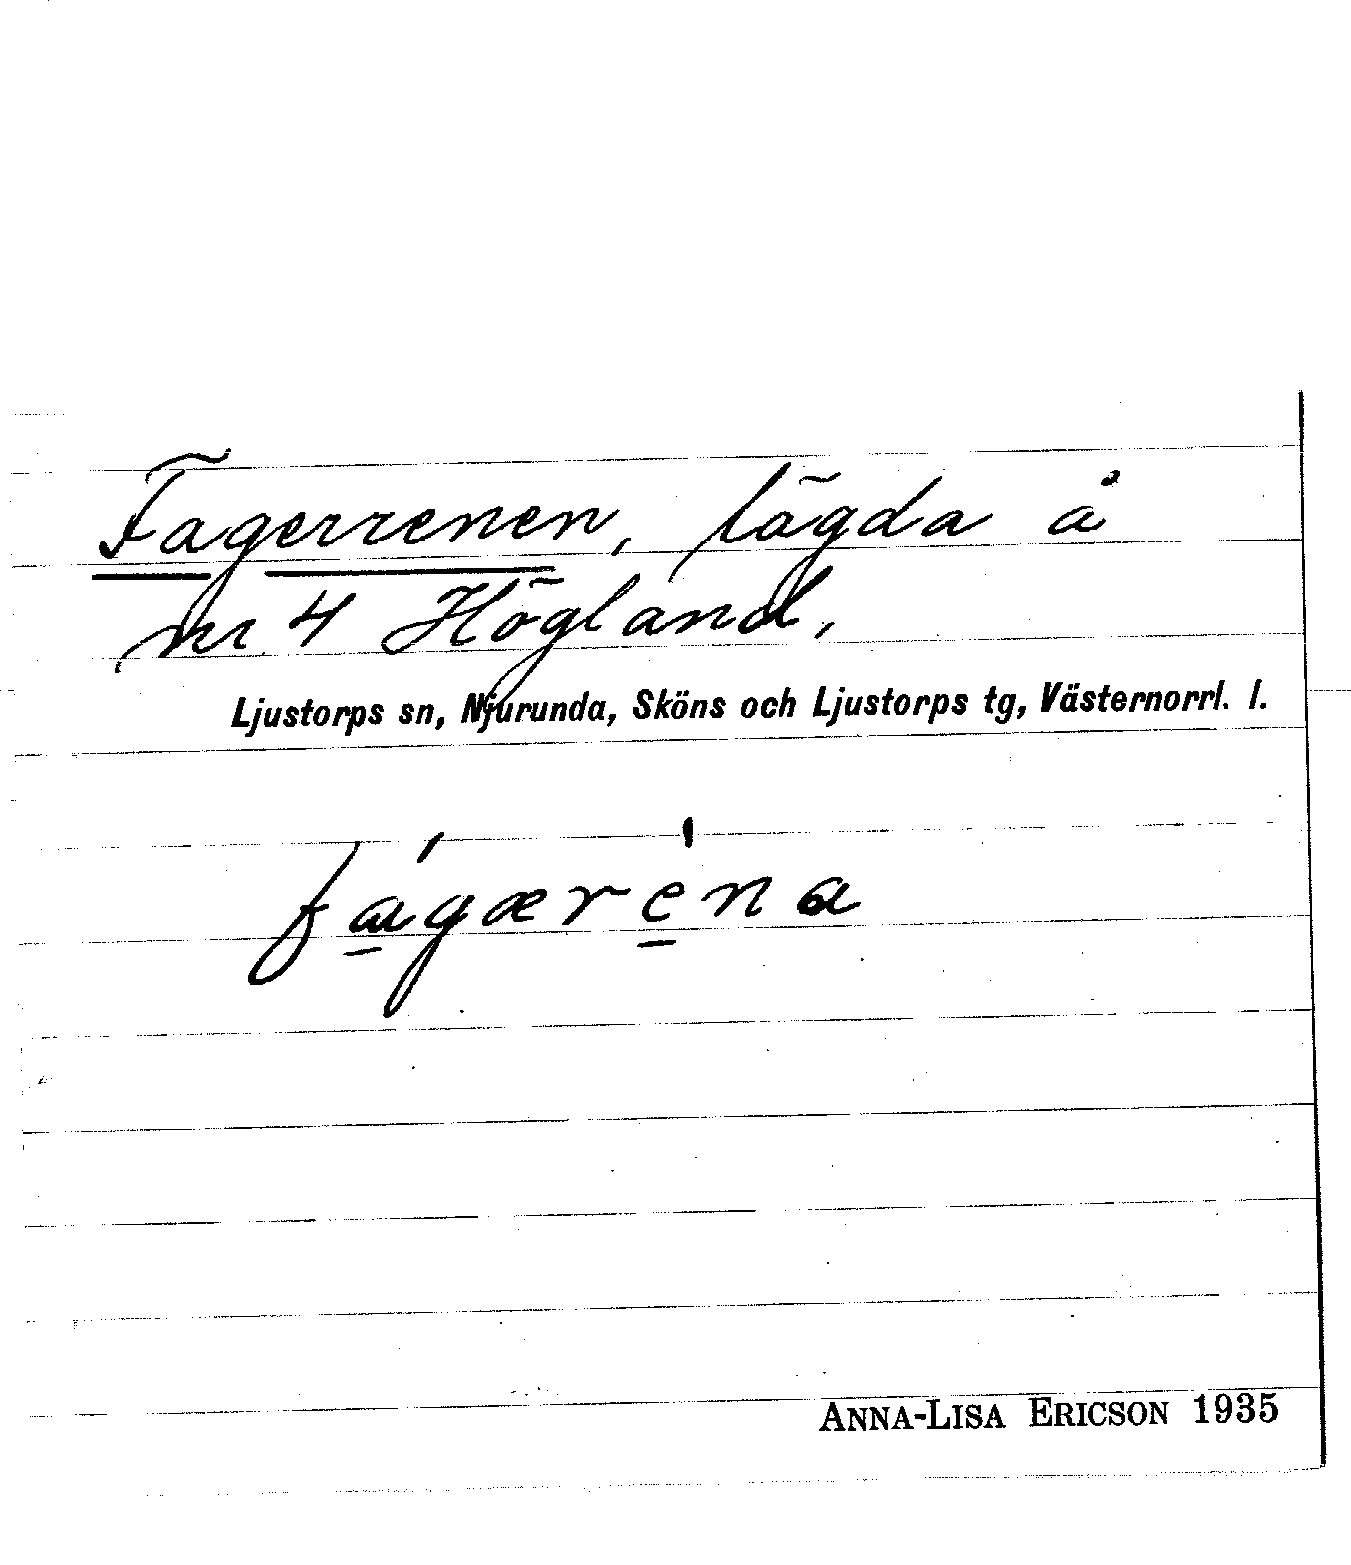 Fagerrenen, lägda å
nr 4 Högland,
Ljustorps sn, Njurunda, Sköns och Ljustorps tg, Västernorrl. l.
fágærèna
ANNA-LISA ERICSON 1935